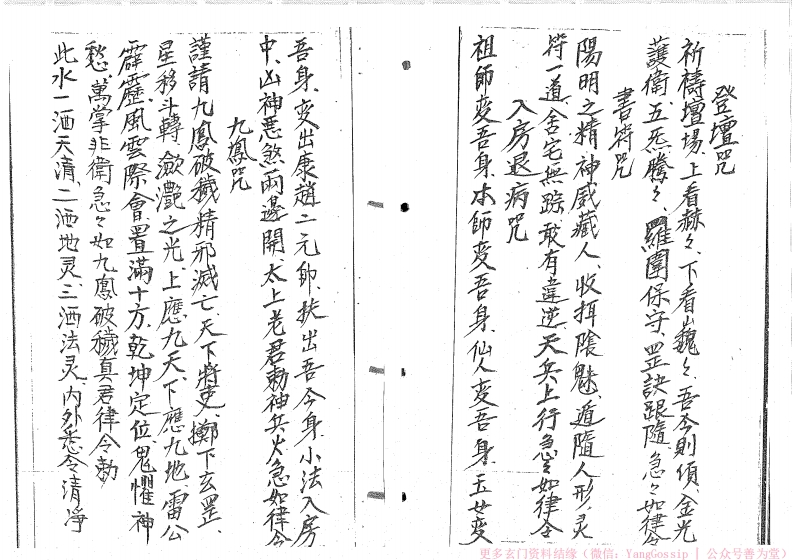 登壇咒
祈禱壇場、上看赫々、下看巍々、吾今則傾、金光
護衛、五炁騰々、羅圍保守、罡訣跟隨、急々如律令
書符咒
陽明之精、神威藏人、收捏陰魅、遁隨人形、灵
符一道、舍宅無踪、敢有違逆、天兵上行、急々如律令
入房退病咒
祖師变吾身、本師变吾身、仙人变吾身、玉女变
吾身、变出康趙二元帅、扶出吾今身、小法入房
中、凶神悪煞兩邊開、太上老君勅神兵火急如律令
九鳳咒
謹請九鳳破穢、精邪滅亡、天下將吏、擲下玄罡、
星移斗轉、歛灔之光、上應九天、下應九地、雷公
霹靂、風雲際會、置滿十方、乾坤定位、鬼懼神
愁、萬掌非衛、急々如九鳳破穢真君律令勅
此水一洒天清、二洒地灵、三洒法灵、内外悉令清淨
更多玄门资料结缘（微信：YangGossip | 公众号善为堂）